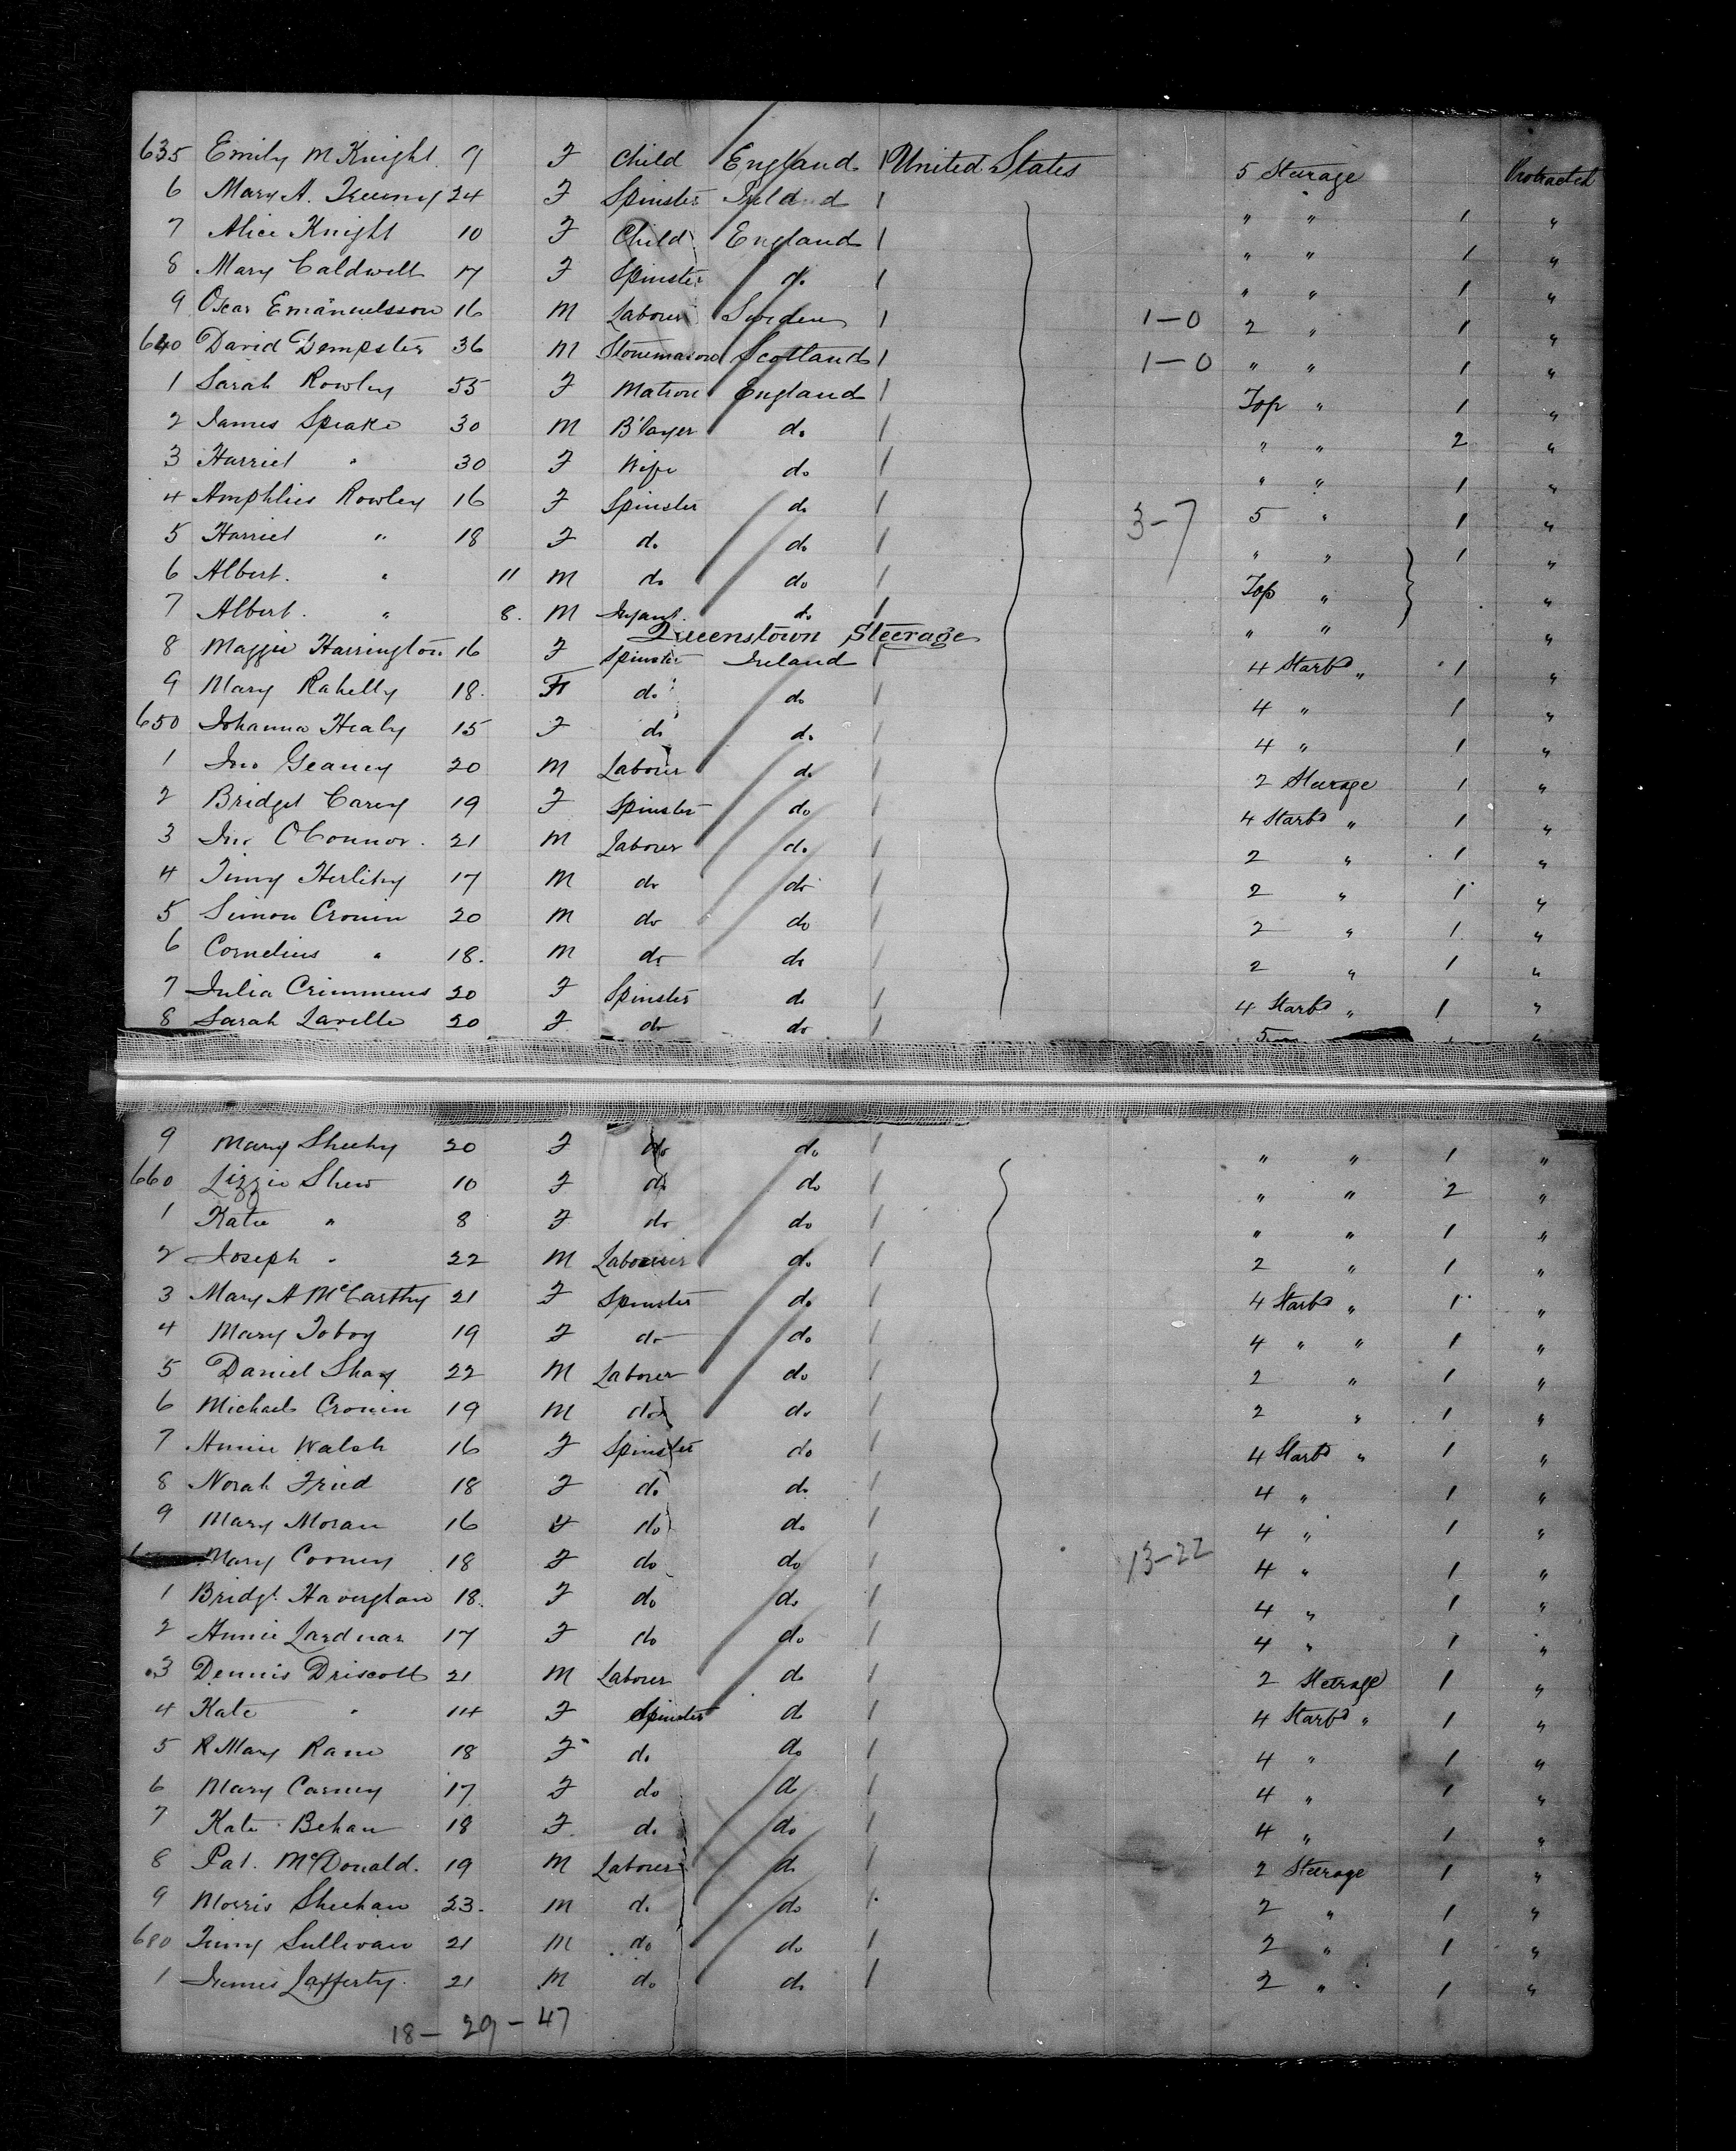 635 Emily M Knight 9 F Child England 1 United States 5 Steerage Protracted
6 Mary A. 24 F Spinster Ireland 1 " " 1 "
7 Alice Knight 10 F Child England 1 " " 1 "
8 Mary Caldwell 17 F Spinster do 1 " " 1 "
9 Oscar Emanuelsson 16 M Laborer Sweden 1 1-0 2 " 1 "
640 David Dempster 36 M Stonemason Scotland 1 1-0 " " 1 "
1 Sarah Rowley 55 F Matron England 1 Top " 1 "
2 James Speake 30 M B'layer do 1 " " 2 "
3 Harriet " 30 F Wife do 1 " " 1 "
4 Amphlies Rowley 16 F Spinster do 1 3-7 5 " 1 "
5 Harriet " 18 F do do 1 " " 1 "
6 Albert. " 11 M do do 1 Top " "
7 Albert. " 8. M Infant. do 1 " " "
Queenstown Steerage
8 Maggie Harrington 16 F Spinster Ireland 1 4 Starbd " 1 "
9 Mary Rahelly 18. F do do 1 4 " 1 "
650 Johanna Healy 15 F do do 1 4 " 1 "
1 Jno Geaney 20 M Laborer do 1 2 Steerage 1 "
2 Bridget Carey 19 F Spinster do 1 4 Starbd " 1 "
3 Jno O'Connor. 21 M Laborer do 1 2 " 1 "
4 Timy Herlihy 17 M do do 1 2 " 1 "
5 Simon Cronin 20 M do do 1 2 " 1 "
6 Cornelius " 18. M do do 1 2 " 1 "
7 Julia Crimmens 20 F Spinster do 1 4 Starbd " 1 "
8 Sarah Lavelle 20 F do do 1 5 "
9 Mary Sheehy 20 F do do 1 " " 1 "
660 Lizzie Shew 10 F do do 1 " " 2 "
1 Katie " 8 F do do 1 " " 1 "
2 Joseph " 22 M Laborer do 1 2 " 1 "
3 Mary A McCarthy 21 F Spinster do 1 4 Starbd " 1 "
4 Mary Toboy 19 F do do 1 4 " " 1 "
5 Daniel Shay 22 M Laborer do 1 2 " 1 "
6 Michael Cronin 19 M do do 1 2 " 1 "
7 Annie Walsh 16 F Spinster do 1 4 Starbd " 1 "
8 Norah Fried 18 F do do 1 4 " 1 "
9 Mary Moran 16 F do do 1 4 " 1 "
Mary Cooney 18 F do do 1 13-22 4 " 1 "
1 Bridgt. Haverglan 18. F do do 1 4 " 1 "
2 Annie Lardnar 17 F do do 1 4 " 1 "
3 Dennis Driscoll 21 M Laborer do 1 2 Steerage 1 "
4 Kate " 14 F Spinster do 1 4 Starbd " 1 "
5 R Mary Rane 18 F do do 1 4 " 1 "
6 Mary Carney 17 F do do 1 4 " 1 "
7 Kate Behan 18 F do do 1 4 " 1 "
8 Pat. McDonald. 19 M Laborer do 1 2 Steerage 1 "
9 Morris Sheehan 23. M do do 1 2 " 1 "
680 Timy Sullivan 21 M do do 1 2 " 1 "
1 James Lafferty. 21 M do do 1 2 " 1 "
18 - 29 - 47